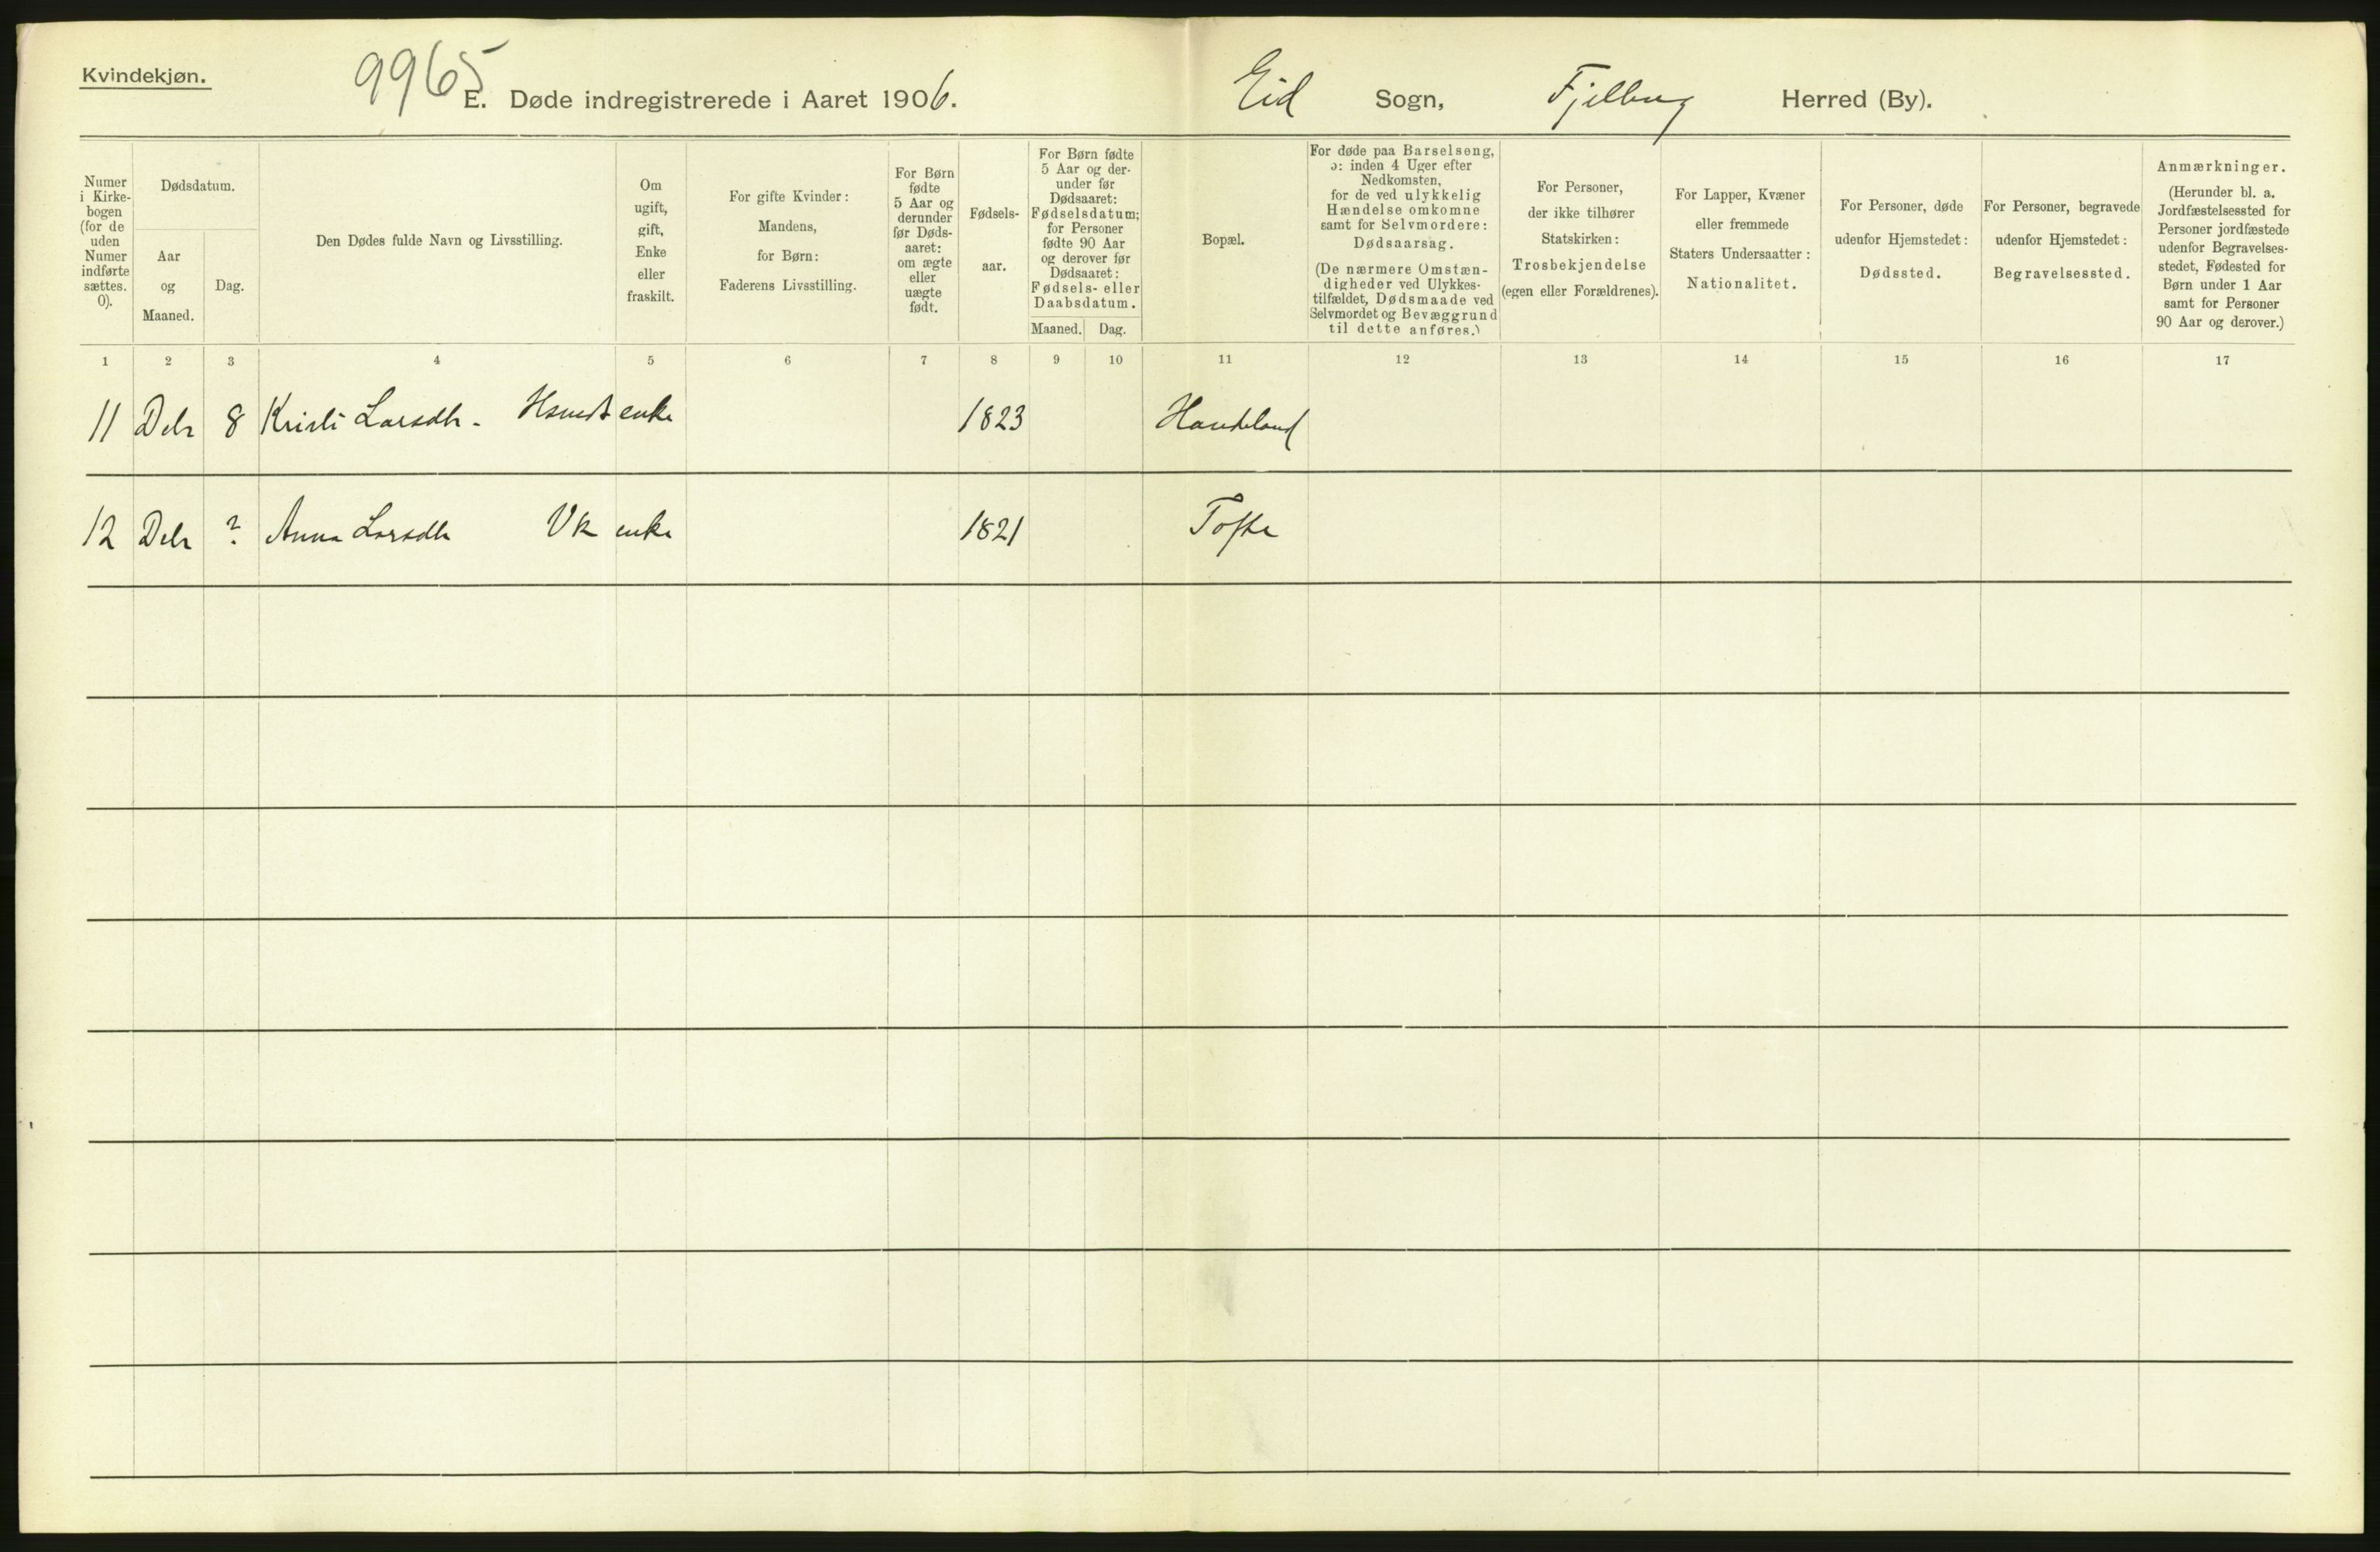 Kvindekjøn.
9965
E. Døde indregistrerede i Aaret 1906.
Eid Sogn, Fjelberg Herred (By).
Numer
i Kirke-
bogen
(for de
uden
Numer
indførte
sættes.
0).
Dødsdatum.
Aar
og
Maaned.
Dag.
Den Dødes fulde Navn og Livsstilling.
Om
ugift,
gift,
Enke
eller
fraskilt.
For gifte Kvinder:
Mandens,
for Børn:
Faderens Livsstilling.
For Børn
fødte
5 Aar og
derunder
før Døds-
aaret:
om ægte
eller
uægte
født.
Fødsels-
aar.
For Børn fødte
5 Aar og der-
under før
Dødsaaret:
Fødselsdatum;
for Personer
fødte 90 Aar
og derover før
Dødsaaret:
Fødsels- eller
Daabsdatum.
Maaned. Dag.
Bopæl.
For døde paa Barselseng,
ɔ: inden 4 Uger efter
Nedkomsten,
for de ved ulykkelig
Hændelse omkomne
samt for Selvmordere:
Dødsaarsag.
(De nærmere Omstæn-
digheder ved Ulykkes-
tilfældet, Dødsmaade ved
Selvmordet og Bevæggrund
til dette anføres.)
For Personer,
der ikke tilhører
Statskirken:
Trosbekjendelse
(egen eller Forældrenes).
For Lapper, Kvæner
eller fremmede
Staters Undersaatter:
Nationalitet.
For Personer, døde
udenfor Hjemstedet:
Dødssted.
For Personer, begravede
udenfor Hjemstedet:
Begravelsessted.
Anmærkninger.
(Herunder bl. a.
Jordfæstelsessted for
Personer jordfæstede
udenfor Begravelses-
stedet, Fødested for
Børn under 1 Aar
samt for Personer
90 Aar og derover.)
1 2 3 4 5 6 7 8 9 10 11 12 13 14 15 16 17
11 Debr 8 Kristi Larsdtr. enke 1823 Handeland
12 Debr ? Anna Larsdtr enke 1821 Tofte